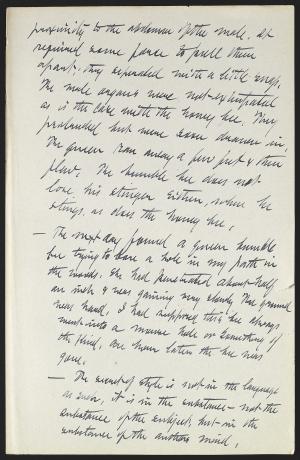 proximity to the abdomen of the male. It
required some force to pull them
apart; they separated with a little snap.
The male organs were not extirpated
as is the case with the honey bee. They
protruded but were soon drawn in.
The queen ran away a few feet & then
flew. The humble bee does not
lose his stinger either, when he
stings, as does the honey bee.
— The next day found a queen humble
bee trying to bore a hole in my path in
the woods. She had penetrated about half
an inch & was gaining very slowly. The ground
was hard. I had supposed this bee always
went into a mouse hole or something of
the kind. An hour later the bee was
gone.
— The secret of style is not in the language
as such, it is in the substance — not the
substance of the subject, but in the
substance of the authors mind.